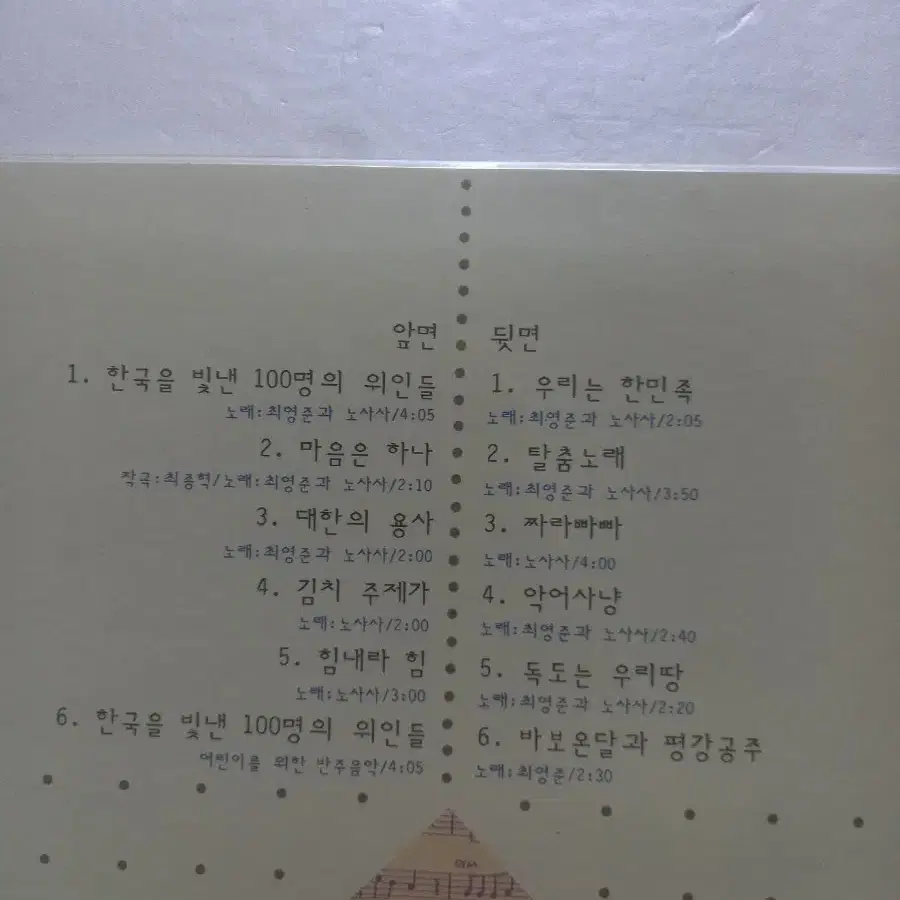 앞면
1. 한국을 빛낸 100명의 위인들
노래:최영준과 노사사/4:05
2. 마음은 하나
작곡:최종혁/노래:최영준과 노사사/2:10
3. 대한의 용사
노래:최영준과 노사사/2:00
4. 김치 주제가
노래:노사사/2:00
5. 힘내라 힘
노래:노사사/3:00
6. 한국을 빛낸 100명의 위인들
어린이를 위한 반주음악/4:05
뒷면
1. 우리는 한민족
노래:최영준과 노사사/2:05
2. 탈춤노래
노래:최영준과 노사사/3:50
3. 짜라빠빠
노래:노사사/4:00
4. 악어사냥
노래:최영준과 노사사/2:40
5. 독도는 우리땅
노래:최영준과 노사사/2:20
6. 바보온달과 평강공주
노래:최영준/2:30